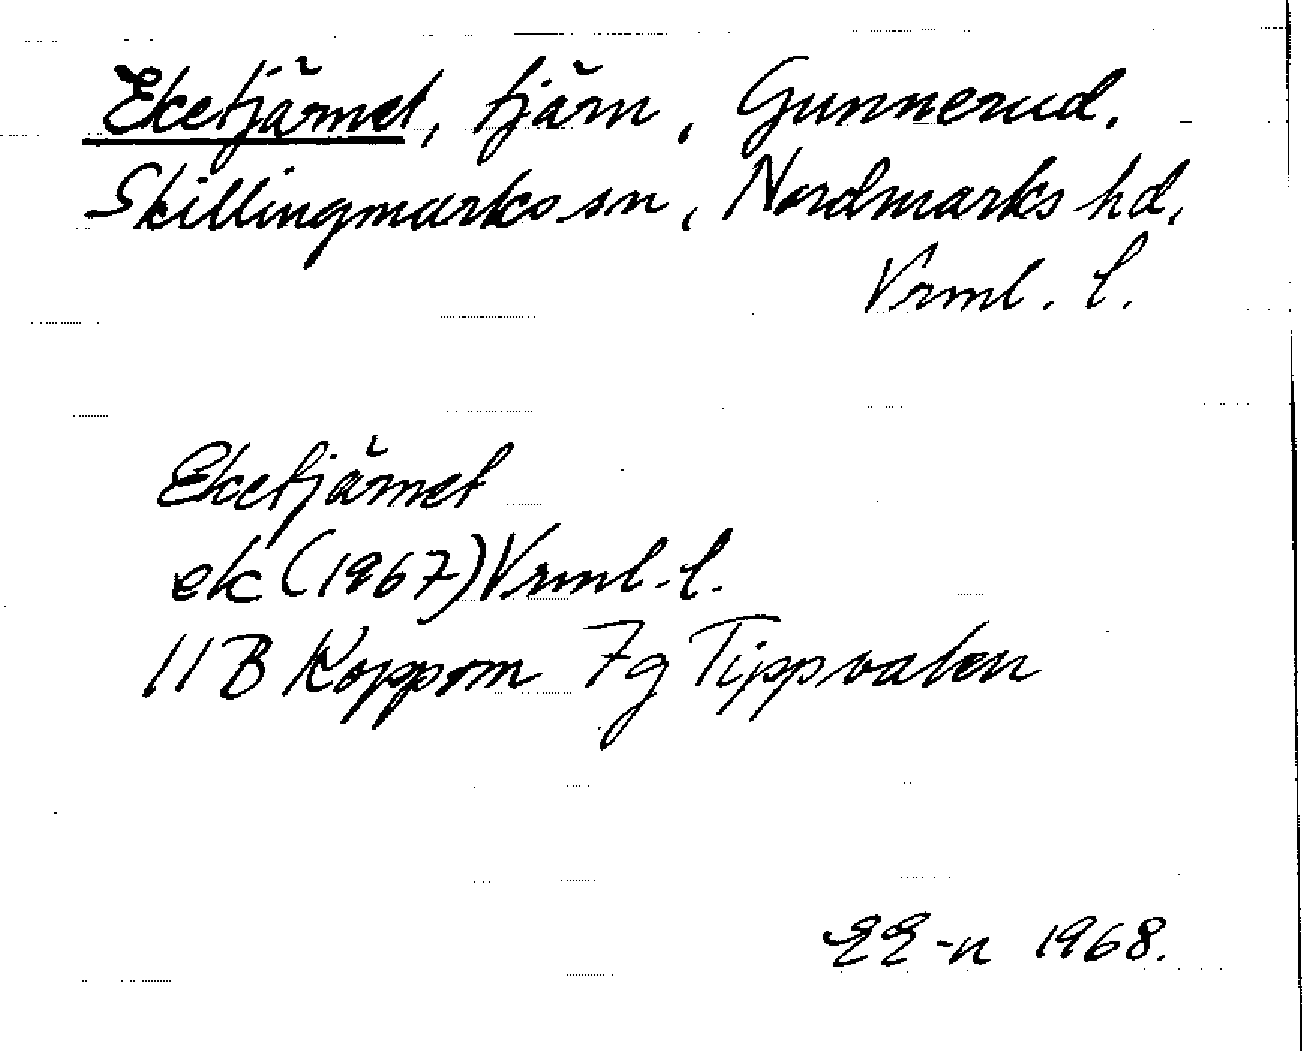 Eketjärnet, tjärn, Gunnerud.
Skillingmarks sn, Nordmarks hd,
Vrml. l.
Eketjärnet
ek (1967) Vrml. l.
11B Koppom 7g Tippvalen
EE-n 1968.